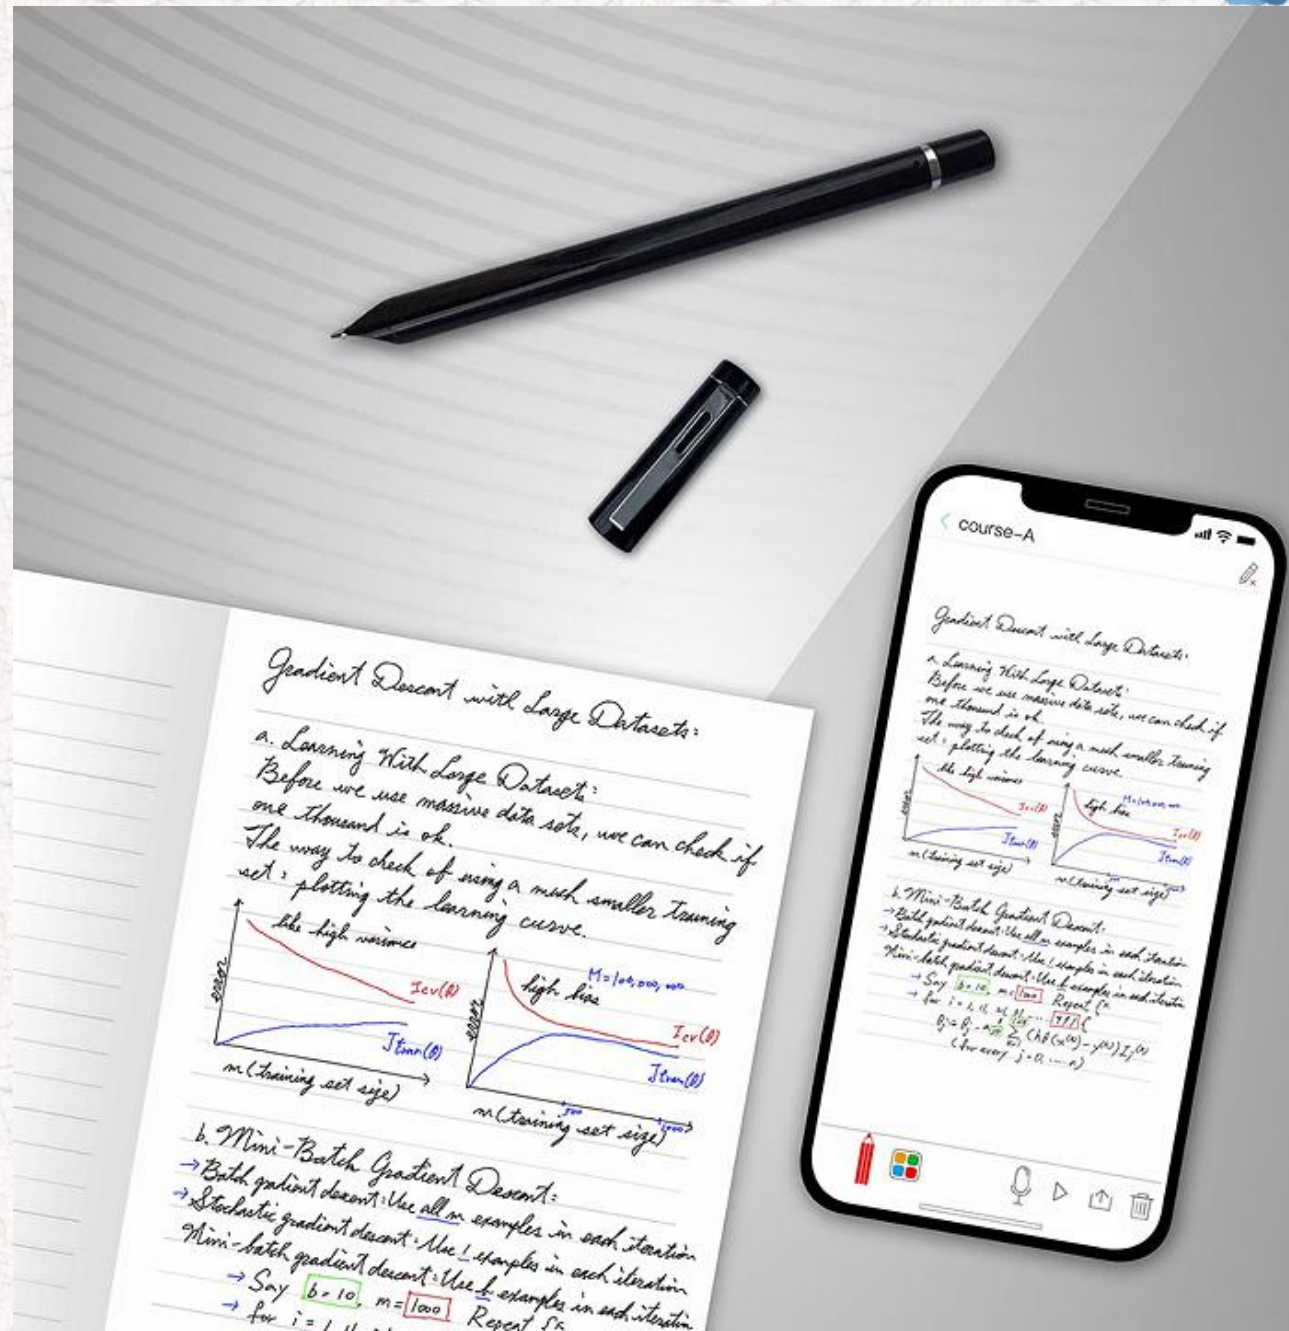 Gradient Descent with Large Datasets:
a. Learning With Large Datasets:
Before we use massive data sets, we can check if
one thousand is ok.
The way to check of using a much smaller training
set: plotting the learning curve.
like high variance
error
Jcv(θ)
Jtrain(θ)
m (training set size)
high bias
M=100,000,000
error
Jcv(θ)
Jtrain(θ)
500
1000
m (training set size)
b. Mini-Batch Gradient Descent:
→ Batch gradient descent: Use all m examples in each iteration
→ Stochastic gradient descent: Use 1 examples in each iteration
Mini-batch gradient descent: Use b examples in each iteration
→ Say b=10, m=1000 Repeat {
→ for i = 1, 11,
course-A
Gradient Descent with Large Datasets:
a. Learning With Large Datasets:
Before we use massive data sets, we can check if
one thousand is ok.
The way to check of using a much smaller training
set: plotting the learning curve.
like high variance
error
Jcv(θ)
Jtrain(θ)
m (training set size)
high bias
M=100,000,000
error
Jcv(θ)
Jtrain(θ)
m (training set size)
b. Mini-Batch Gradient Descent:
→ Batch gradient descent: Use all m examples in each iteration
→ Stochastic gradient descent: Use 1 examples in each iteration
Mini-batch gradient descent: Use b examples in each iteration
→ Say b=10, m=1000 Repeat {
→ for i = 1, 11, 21, ... 991 {
(for every j=0, ... n)